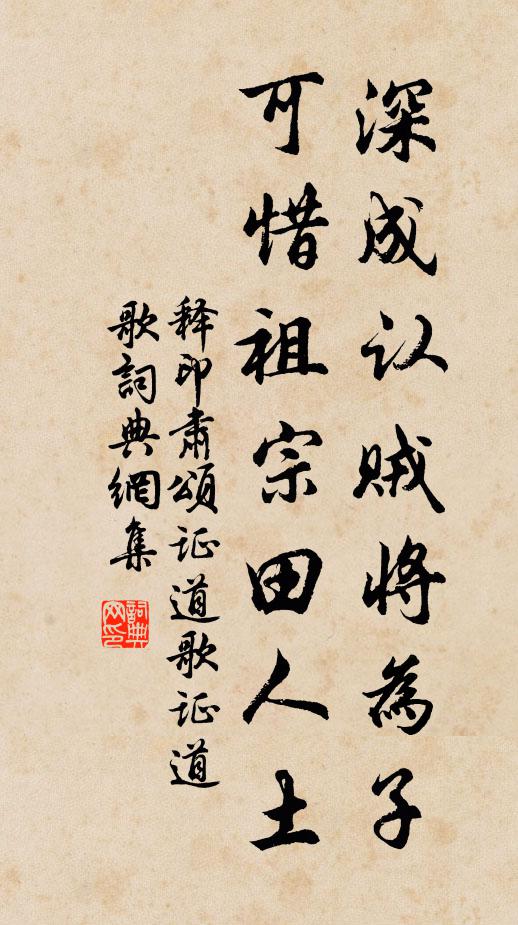 深成认贼将為子
可惜祖宗田人土
释印肃颂证道歌证道
歌詞典網集
詞典
网印